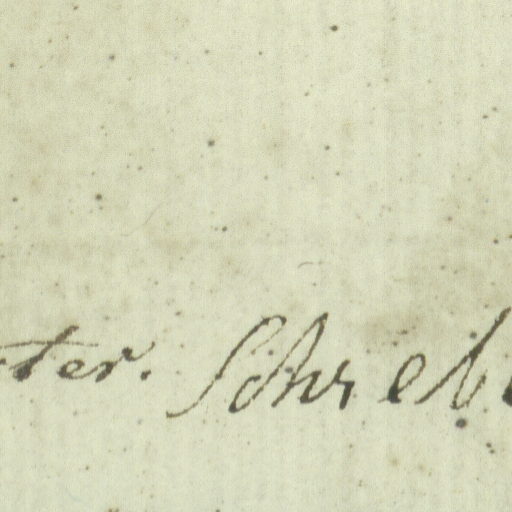 ter. Schreb